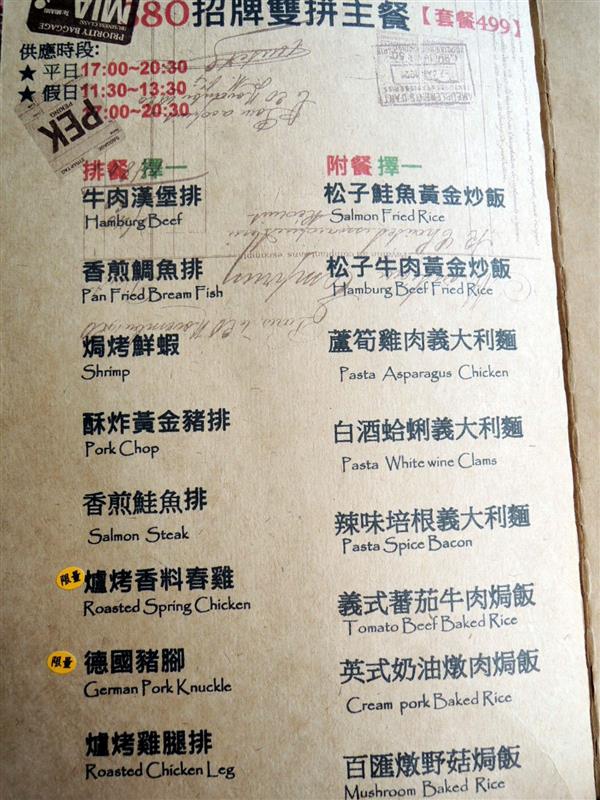 MIA
PRIORITY BAGGAGE
380招牌雙拼主餐【套餐499】
供應時段:
★ 平日17:00~20:30
★ 假日11:30~13:30
17:00~20:30
PEK
排餐 擇一
牛肉漢堡排
Hamburg Beef
香煎鯛魚排
Pan Fried Bream Fish
焗烤鮮蝦
Shrimp
酥炸黃金豬排
Pork Chop
香煎鮭魚排
Salmon Steak
限量 爐烤香料春雞
Roasted Spring Chicken
限量 德國豬腳
German Pork Knuckle
爐烤雞腿排
Roasted Chicken Leg
附餐 擇一
松子鮭魚黃金炒飯
Salmon Fried Rice
松子牛肉黃金炒飯
Hamburg Beef Fried Rice
蘆筍雞肉義大利麵
Pasta Asparagus Chicken
白酒蛤蜊義大利麵
Pasta White wine Clams
辣味培根義大利麵
Pasta Spice Bacon
義式蕃茄牛肉焗飯
Tomato Beef Baked Rice
英式奶油燉肉焗飯
Cream pork Baked Rice
百匯燉野菇焗飯
Mushroom Baked Rice